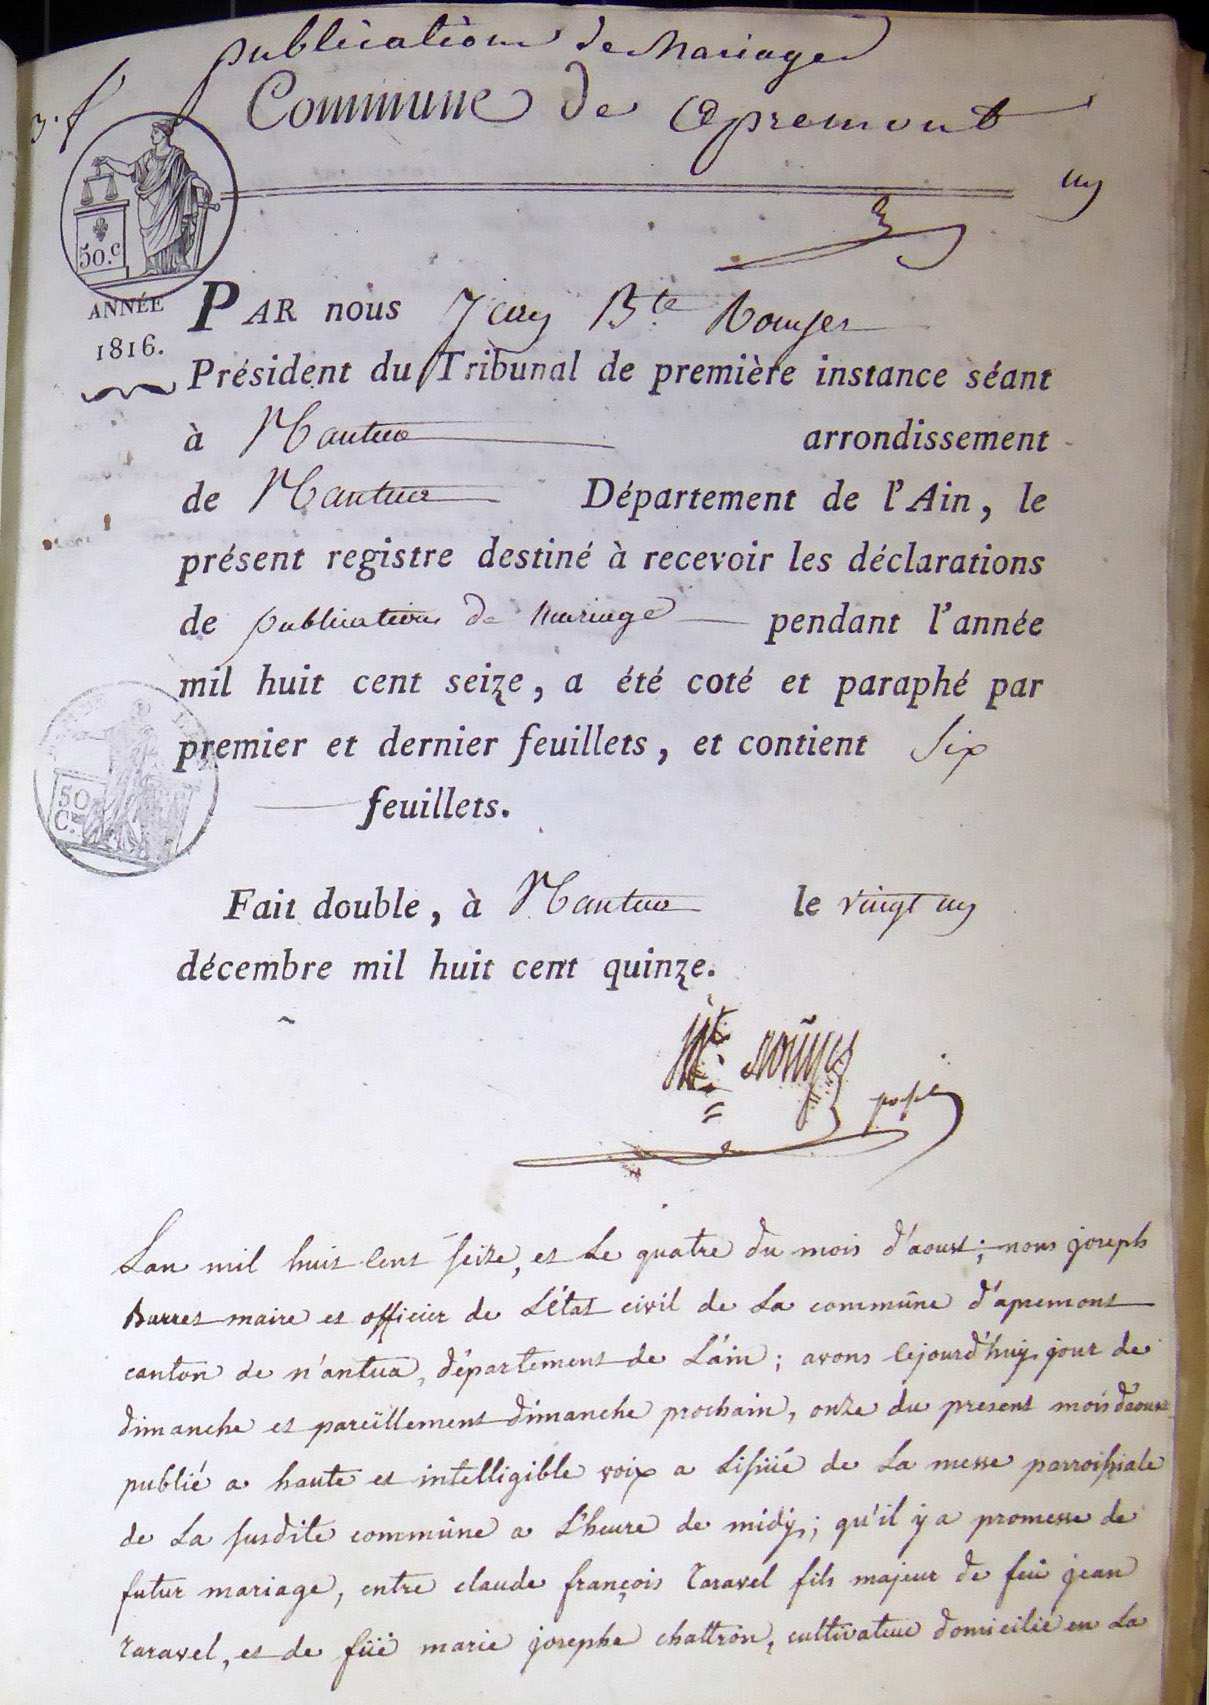 publication de Mariage
3. f
Commune de apremont
un
50.c
ANNÉE
1816.
PAR nous Jean B.te Rouyer
Président du Tribunal de première instance séant
à Nantua arrondissement
de Nantua Département de l'Ain, le
présent registre destiné à recevoir les déclarations
de publications de mariage pendant l'année
mil huit cent seize, a été coté et paraphé par
premier et dernier feuillets, et contient six
50
C.
feuillets.
Fait double, à Nantua le vingt un
décembre mil huit cent quinze.
Lan mil huit cent seize, et le quatre du mois d'aoust; nous joseph
Barret maire et officier de L'état civil de La commune d'apremont
canton de n'antua, département de L'ain; avons cejourd'huy jour de
dimanche et pareillement dimanche prochain, onze du present mois daoust
publié a haute et intelligible voix a Lissüe de La messe parroissiale
de La susdite commune a L'heure de midy; qu'il y a promesse de
futur mariage, entre claude françois Taravel fils majeur de feu jean
Taravel, et de füe marie josephe chattron, cultivateur domicilié en La